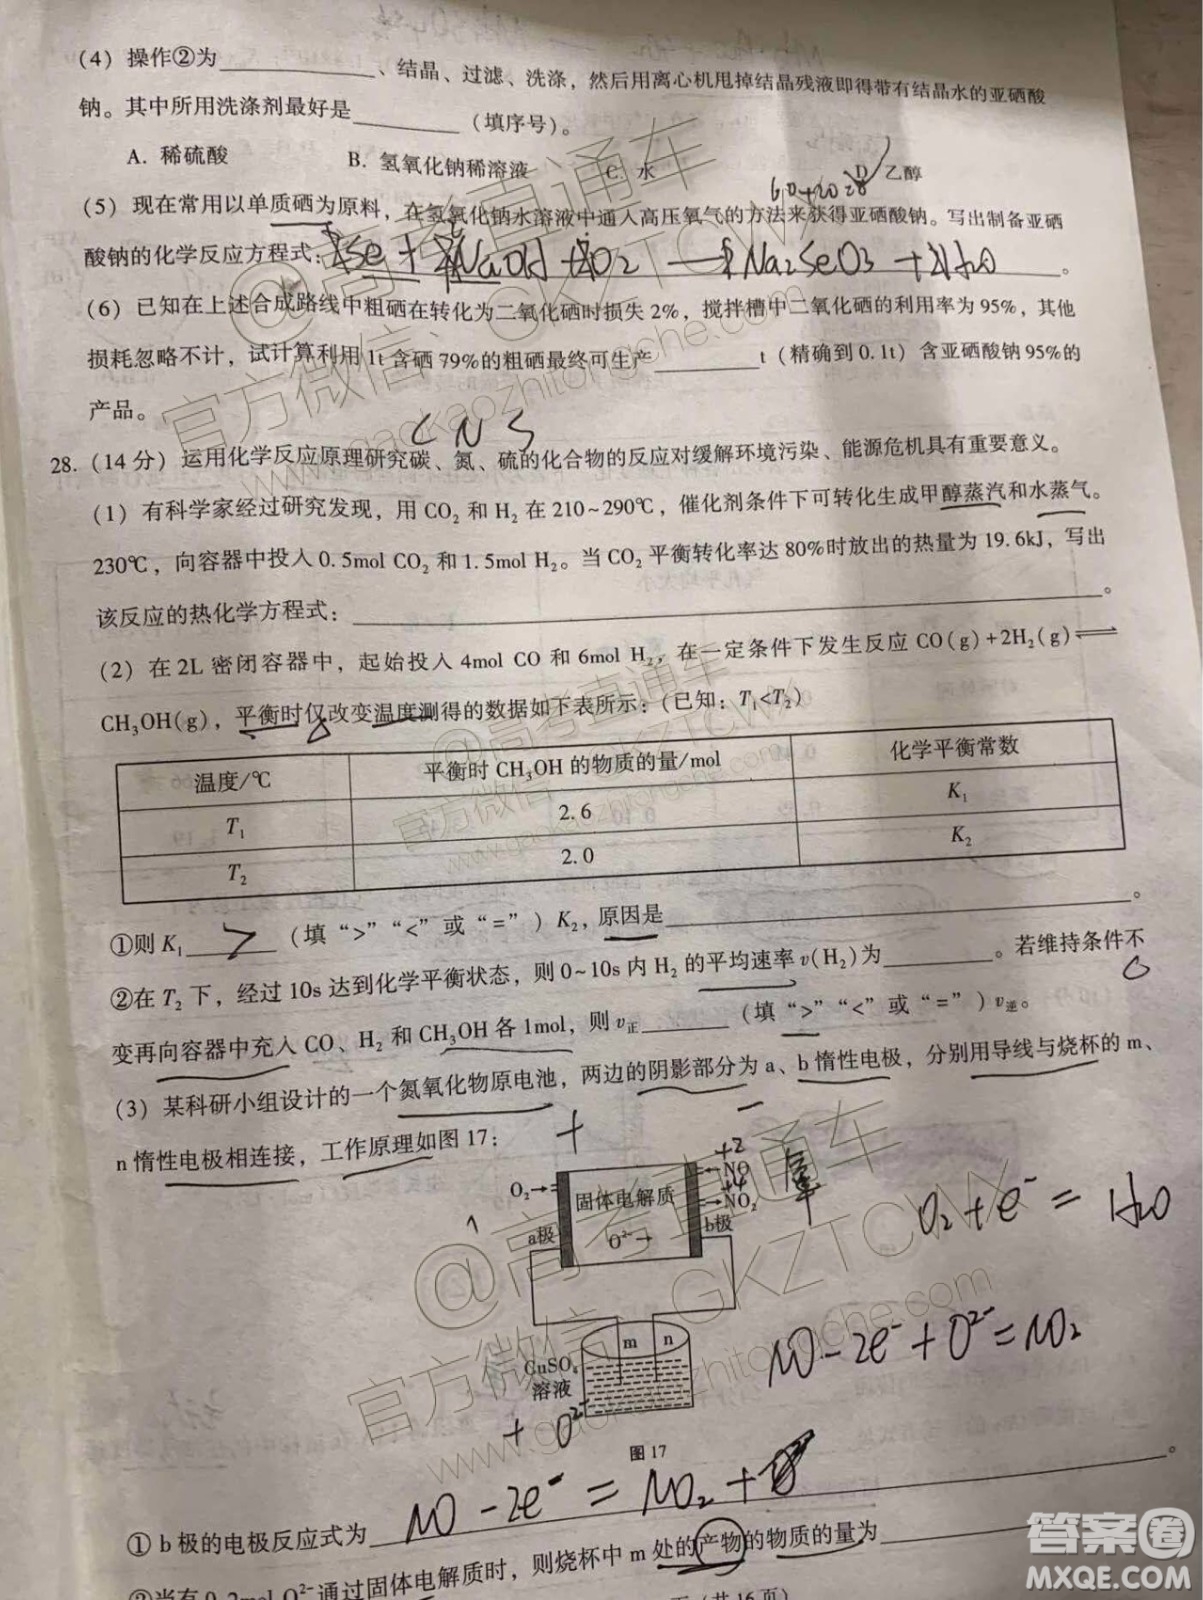 (4) 操作②为____________、结晶、过滤、洗涤，然后用离心机甩掉结晶残液即得带有结晶水的亚硒酸
钠。其中所用洗涤剂最好是_________（填序号）。
A. 稀硫酸 B. 氢氧化钠稀溶液 C. 水 D. 乙醇
(5) 现在常用以单质硒为原料，在氢氧化钠水溶液中通入高压氧气的方法来获得亚硒酸钠。写出制备亚硒
酸钠的化学反应方程式：Se + 2NaOH + O2 — Na2SeO3 + H2O。
(6) 已知在上述合成路线中粗硒在转化为二氧化硒时损失 2%，搅拌槽中二氧化硒的利用率为 95%，其他
损耗忽略不计，试计算利用 1t 含硒 79%的粗硒最终可生产_________t（精确到 0.1t）含亚硒酸钠 95%的
产品。
C N S
28. (14 分) 运用化学反应原理研究碳、氮、硫的化合物的反应对缓解环境污染、能源危机具有重要意义。
(1) 有科学家经过研究发现，用 CO₂ 和 H₂ 在 210~290℃，催化剂条件下可转化生成甲醇蒸汽和水蒸气。
230℃，向容器中投入 0.5mol CO₂ 和 1.5mol H₂。当 CO₂ 平衡转化率达 80%时放出的热量为 19.6kJ，写出
该反应的热化学方程式：____________。
(2) 在 2L 密闭容器中，起始投入 4mol CO 和 6mol H₂，在一定条件下发生反应 CO(g)+2H₂(g)⇌
CH₃OH(g)，平衡时仅改变温度测得的数据如下表所示：（已知：T₁<T₂）
温度/℃ 平衡时 CH₃OH 的物质的量/mol 化学平衡常数
T₁ 2.6 K₁
T₂ 2.0 K₂
①则 K₁ > （填“>”“<”或“=”）K₂，原因是____________。
②在 T₂ 下，经过 10s 达到化学平衡状态，则 0~10s 内 H₂ 的平均速率 v(H₂)为_________。若维持条件不
变再向容器中充入 CO、H₂ 和 CH₃OH 各 1mol，则 v正_______（填“>”“<”或“=”）v逆。
(3) 某科研小组设计的一个氮氧化物原电池，两边的阴影部分为 a、b 惰性电极，分别用导线与烧杯的 m、
n 惰性电极相连接，工作原理如图 17：
+ −
+2
O₂→ 固体电解质 NO
+4
NO₂
a极 O²⁻→ b极
O2 + e⁻ = H2O
m n
CuSO₄
溶液
NO − 2e⁻ + O²⁻ = NO2
+ O²⁻
图 17
① b 极的电极反应式为 NO − 2e⁻ = NO2 + 。
②当有 0.2mol O²⁻通过固体电解质时，则烧杯中 m 处的产物的物质的量为_________
（共16页）
答案圈
MXQE.COM
@高考直通车
官方微信：GKZTCWX
www.gaokaozhitongche.com
@高考直通车
官方微信：GKZTCWX
www.gaokaozhitongche.com
@高考直通车
官方微信：GKZTCWX
www.gaokaozhitongche.com